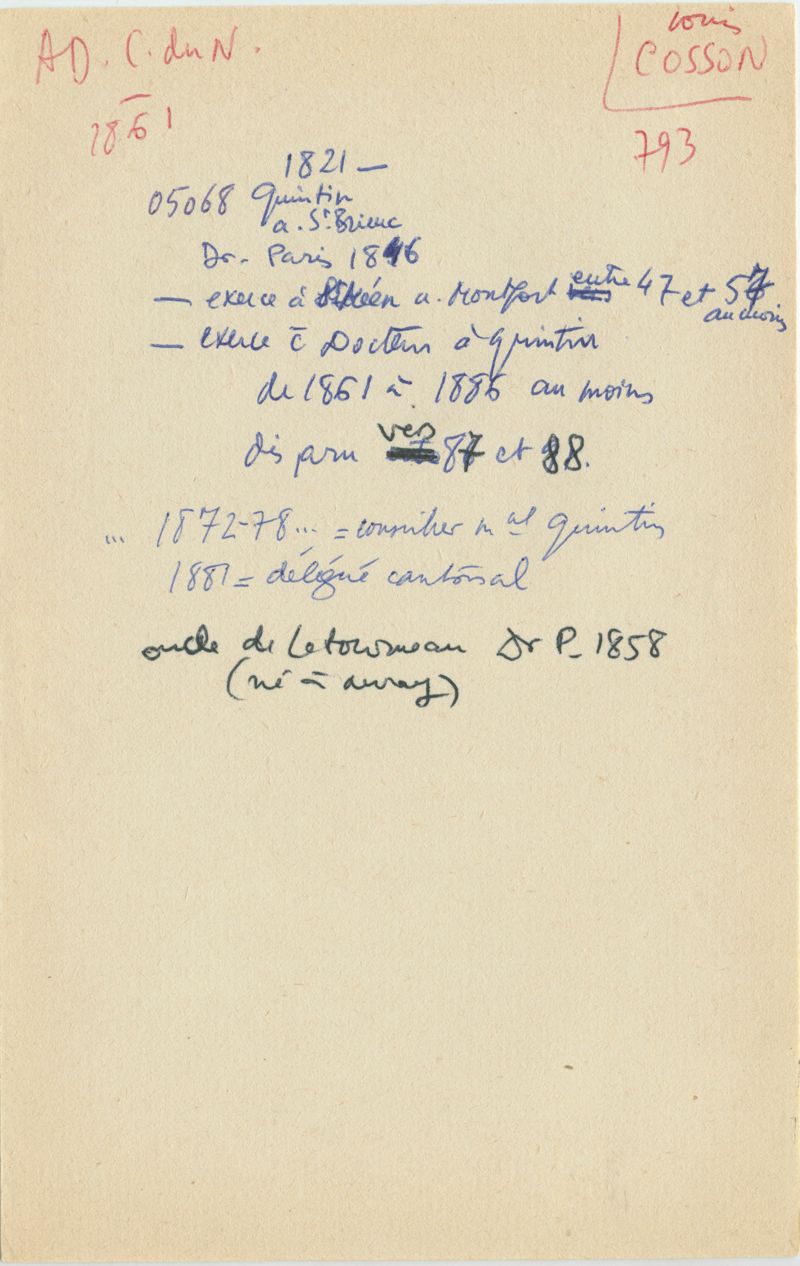 AD. C. du N.
Louis
COSSON
1861
793
1821 —
05068 Quintin
a. St. Brieuc
Dr. Paris 1846
— exerce à a. Montfort entre 47 et 57
au moins
— exerce c̄ Docteur à Quintin
de 1861 à 1886 au moins
disparu vers 87 et 88.
... 1872-78... = conseiller mal Quintin
1881 = délégué cantonal
oncle de Letourneau Dr P. 1858
(né à auray)